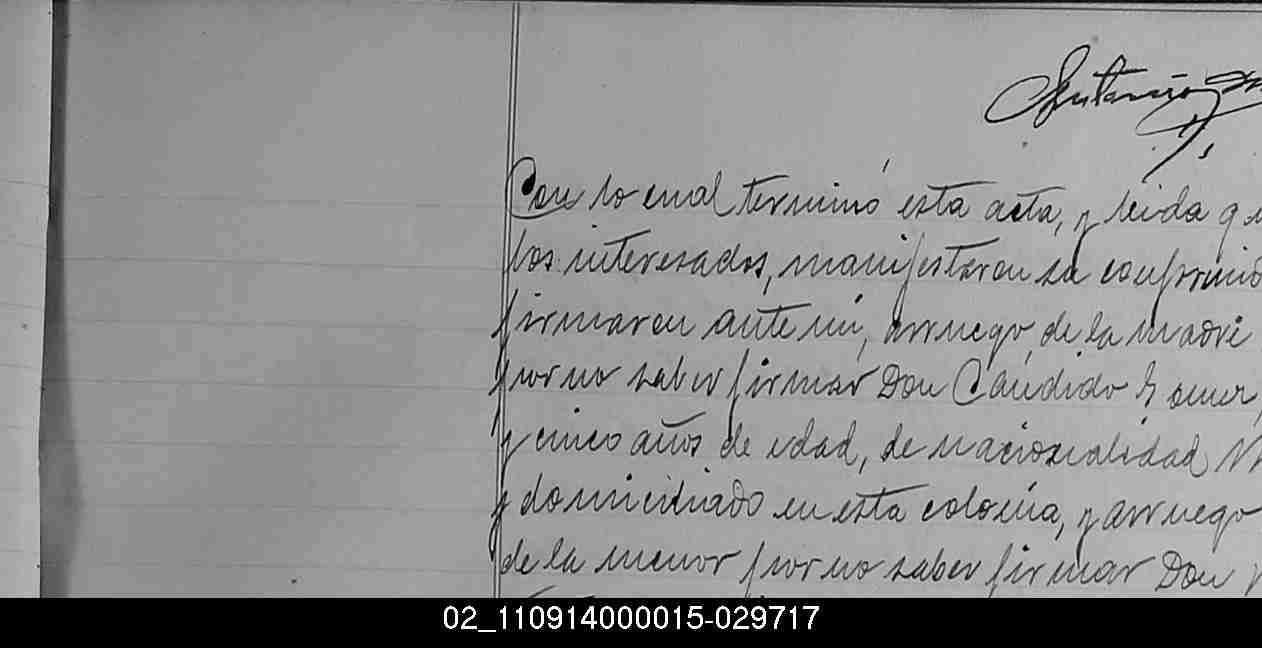 Antonio
Con lo cual terminó esta acta, y leida qu
los interesados, manifestaron su conformid
firmaron ante mi, arruego de la madre
por no saber firmar Don Cándido
y cinco años de edad, de nacionalidad
y domiciliado en esta colonia, y arruego
de la menor por no saber firmar Don
02_110914000015-029717